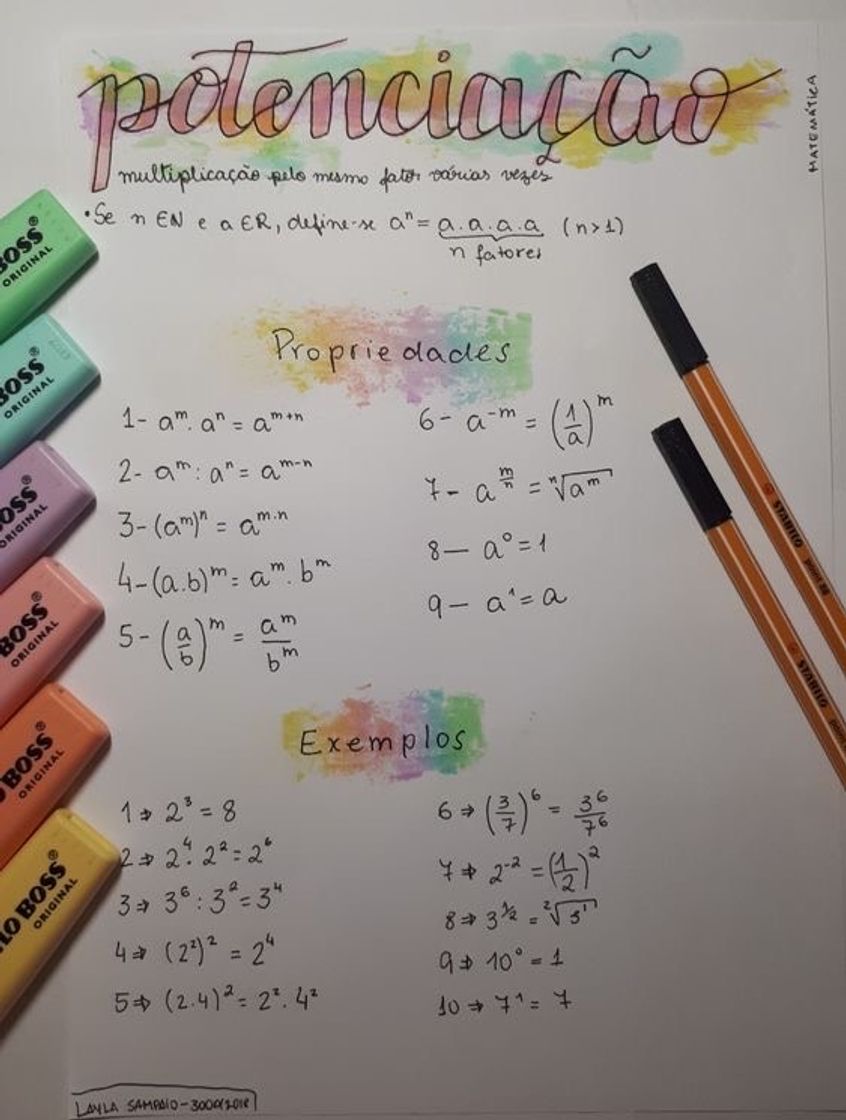 potenciação
MATEMÁTICA
multiplicação pelo mesmo fator várias vezes
• Se n ∈ N e a ∈ R, define-se aⁿ = a.a.a.a (n>1)
n fatores
Propriedades
1- aᵐ. aⁿ = aᵐ⁺ⁿ
2- aᵐ : aⁿ = aᵐ⁻ⁿ
3- (aᵐ)ⁿ = aᵐ·ⁿ
4- (a.b)ᵐ = aᵐ. bᵐ
5- (a/b)ᵐ = aᵐ/bᵐ
6- a⁻ᵐ = (1/a)ᵐ
7- a^(m/n) = ⁿ√aᵐ
8- a⁰ = 1
9- a¹ = a
Exemplos
1 ⇒ 2³ = 8
2 ⇒ 2⁴. 2² = 2⁶
3 ⇒ 3⁶ : 3² = 3⁴
4 ⇒ (2²)² = 2⁴
5 ⇒ (2.4)² = 2². 4²
6 ⇒ (3/7)⁶ = 3⁶/7⁶
7 ⇒ 2⁻² = (1/2)²
8 ⇒ 3^(1/2) = ²√3¹
9 ⇒ 10⁰ = 1
10 ⇒ 7¹ = 7
LAYLA SAMPAIO
BOSS®
ORIGINAL
BOSS®
ORIGINAL
BOSS®
ORIGINAL
BOSS®
ORIGINAL
BOSS®
ORIGINAL
LO BOSS®
ORIGINAL
STABILO point 88
STABILO